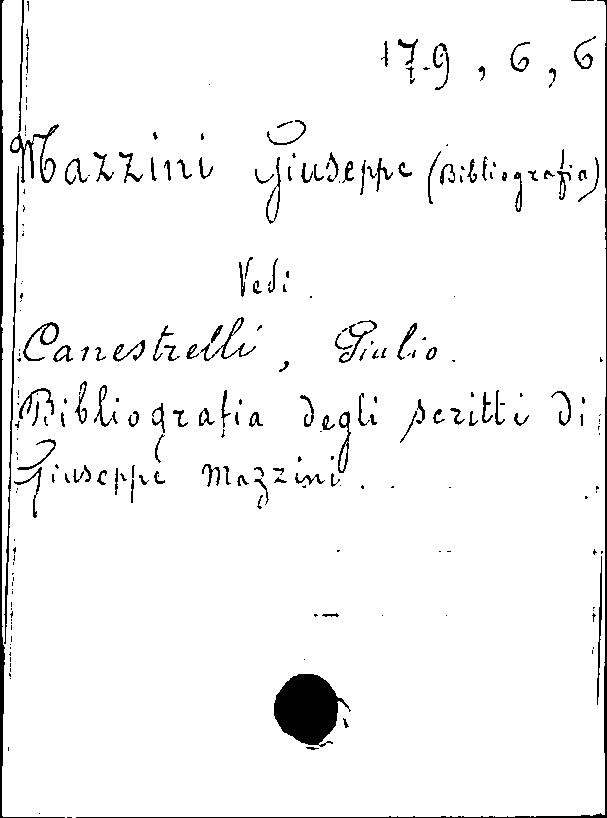 179, 6, 6
Mazzini Giuseppe (Bibliografia)
Vedi
Canestrelli, Giulio.
Bibliografia degli scritti di
Giuseppe Mazzini.